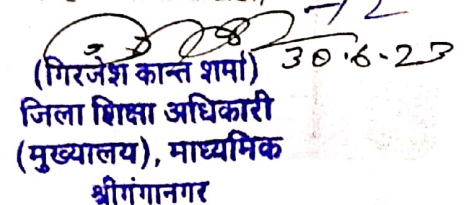 30.6.23
(गिरजेश कान्त शर्मा)
जिला शिक्षा अधिकारी
(मुख्यालय), माध्यमिक
श्रीगंगानगर